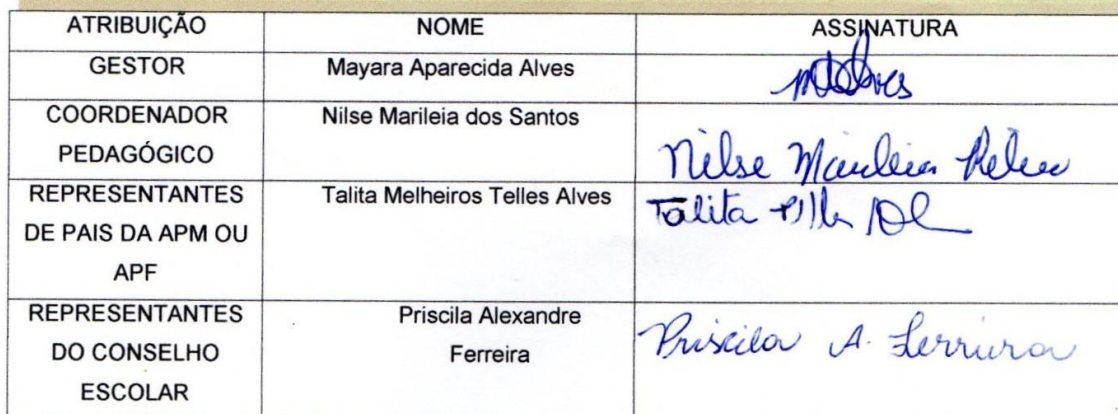 ATRIBUIÇÃO NOME ASSINATURA
GESTOR Mayara Aparecida Alves
COORDENADOR PEDAGÓGICO Nilse Marileia dos Santos Nilse Marileia
REPRESENTANTES DE PAIS DA APM OU APF Talita Melheiros Telles Alves Talita
REPRESENTANTES DO CONSELHO ESCOLAR Priscila Alexandre Ferreira Priscila A. Ferreira